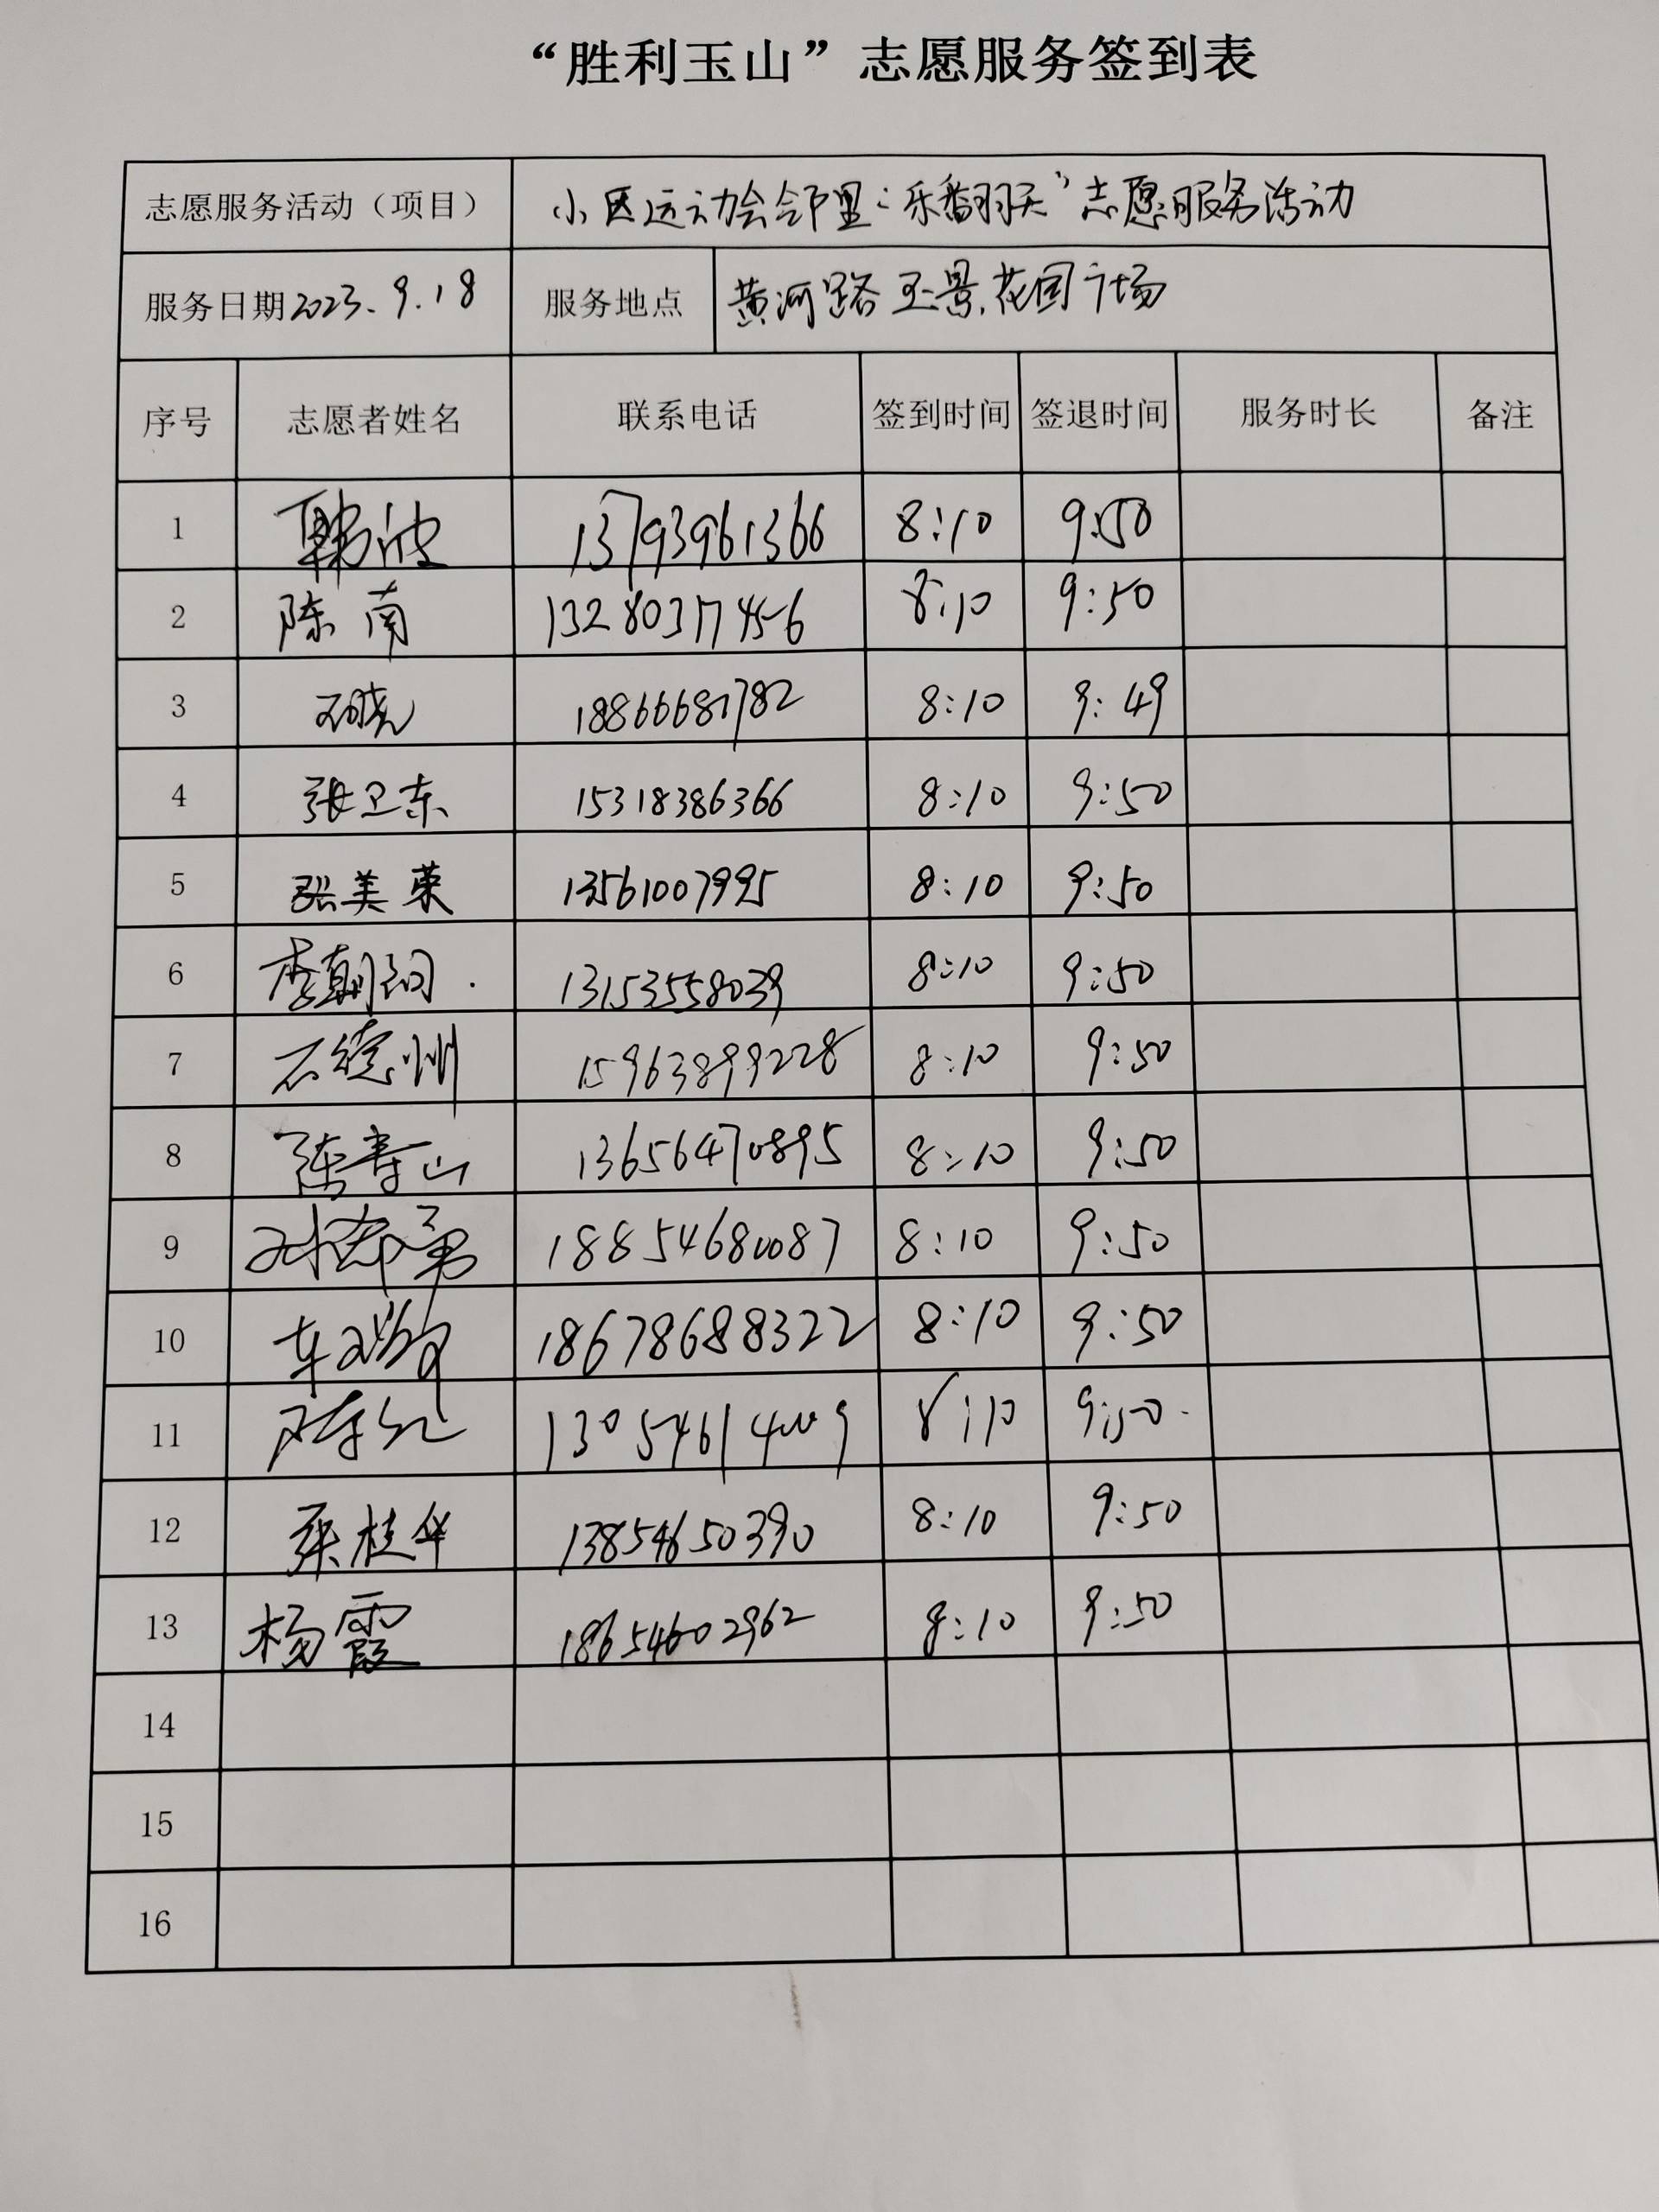 “胜利玉山”志愿服务签到表
志愿服务活动（项目） 小区运动会邻里“乐翻天”志愿服务活动
服务日期2023.9.18 服务地点 黄河路玉景花园广场
序号 志愿者姓名 联系电话 签到时间 签退时间 服务时长 备注
1 韩波 13793961366 8:10 9:50
2 陈南 13280317456 8:10 9:50
3 石晓 18866681782 8:10 9:49
4 张卫东 15318386366 8:10 9:50
5 张美荣 13561007995 8:10 9:50
6 李朝阳 13153558039 8:10 9:50
7 石德州 15963899228 8:10 9:50
8 陈寿山 13656470895 8:10 9:50
9 18854680087 8:10 9:50
10 车 18678688322 8:10 9:50
11 陈红 13054614009 8:10 9:50
12 张桂华 13854650390 8:10 9:50
13 杨霞 18654602962 8:10 9:50
14
15
16